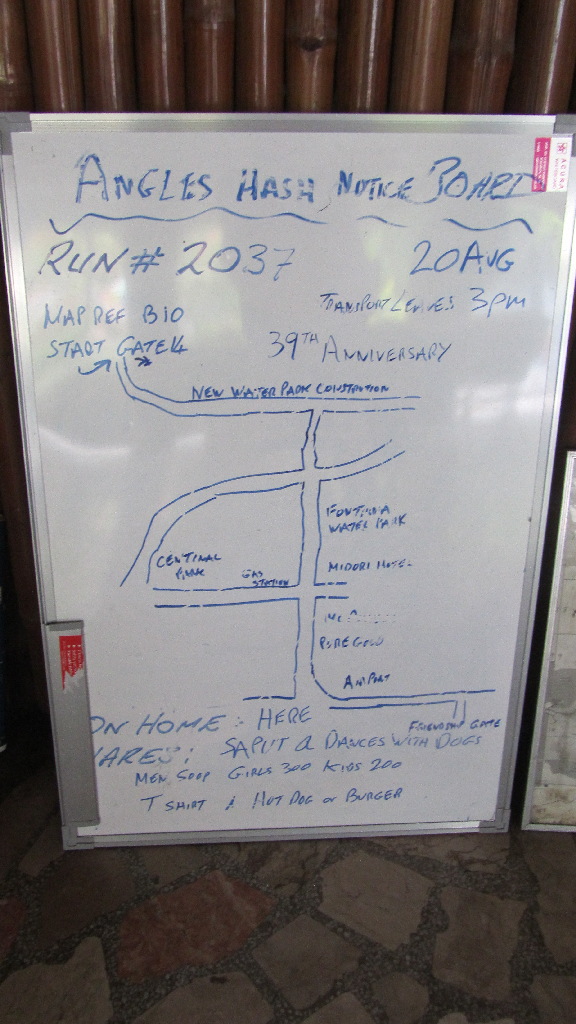 ANGLES HASH NOTICE BOARD
RUN# 2037
20 AUG
TRANSPORT LEAVES 3pm
MAP REF B10
START GATE 14
39TH ANNIVERSARY
NEW WATER PARK
FONTINA
WATER PARK
CENTINAL
PARK
GAS
STATION
MIDORI HOTEL
PUREGOLD
AIRPORT
FRIENDSHIP GATE
ON HOME: HERE
HARES: SAPUTA DANCES WITH DOGS
MEN 500P GIRLS 300 KIDS 200
T SHIRT & HOT DOG or BURGER
ACURA